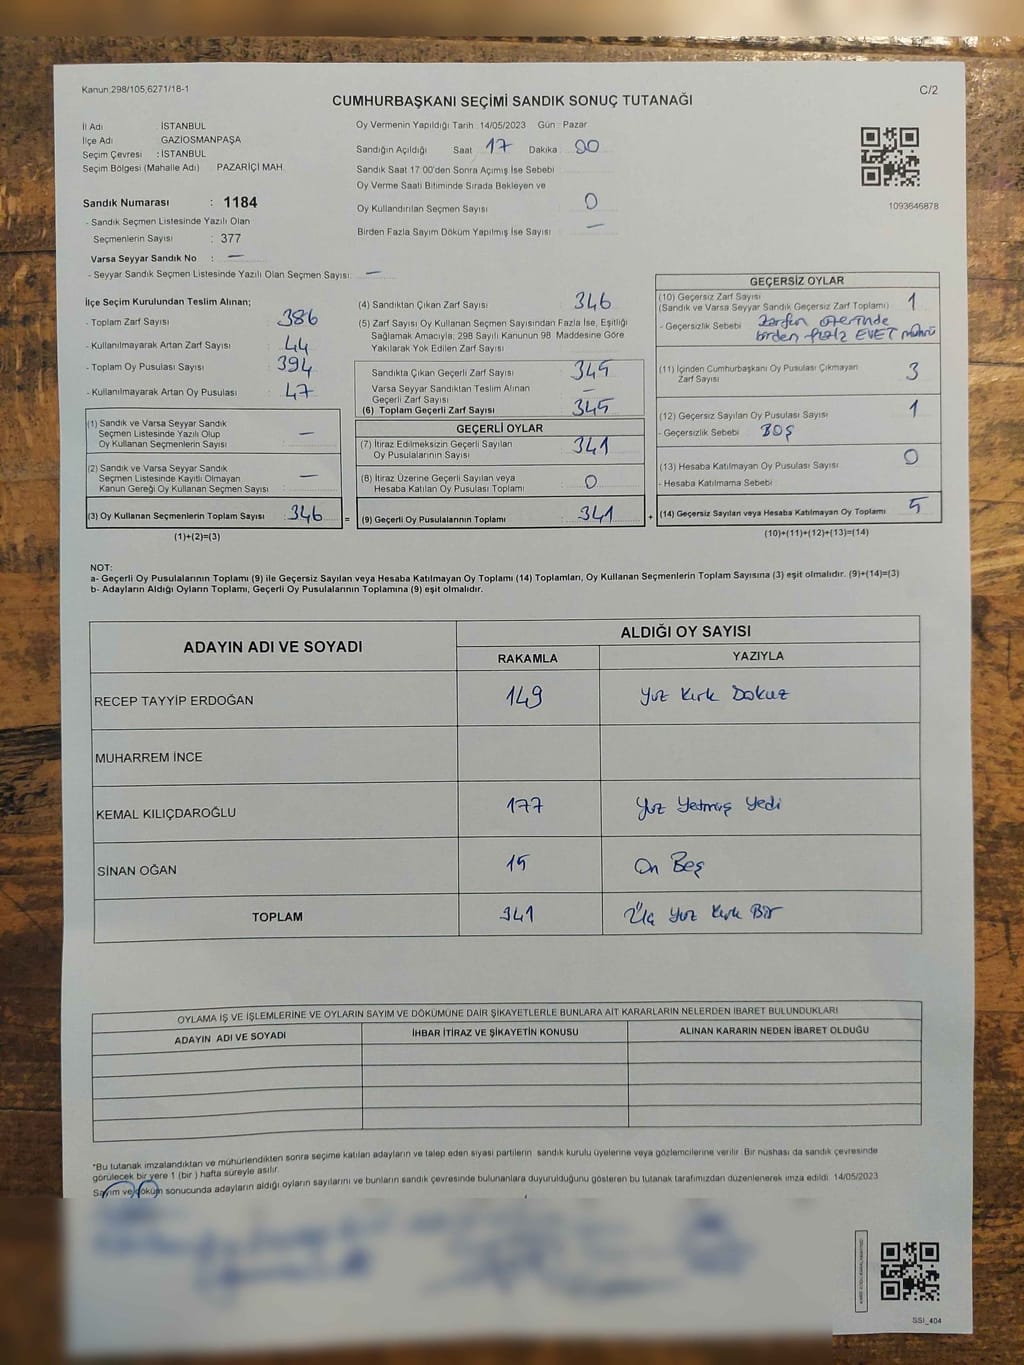 Kanun 298/105,6271/18-1
C/2
CUMHURBAŞKANI SEÇİMİ SANDIK SONUÇ TUTANAĞI
İl Adı : İSTANBUL
İlçe Adı GAZİOSMANPAŞA
Seçim Çevresi : İSTANBUL
Seçim Bölgesi (Mahalle Adı) PAZARİÇİ MAH.
Sandık Numarası : 1184
- Sandık Seçmen Listesinde Yazılı Olan
Seçmenlerin Sayısı : 377
Varsa Seyyar Sandık No : —
- Seyyar Sandık Seçmen Listesinde Yazılı Olan Seçmen Sayısı: —
Oy Vermenin Yapıldığı Tarih 14/05/2023 Gün : Pazar
Sandığın Açıldığı Saat 17 Dakika 00
Sandık Saat 17 00'den Sonra Açımış İse Sebebi
Oy Verme Saati Bitiminde Sırada Bekleyen ve
Oy Kullandırılan Seçmen Sayısı 0
Birden Fazla Sayım Döküm Yapılmış İse Sayısı —
1093646878
İlçe Seçim Kurulundan Teslim Alınan;
- Toplam Zarf Sayısı : 386
- Kullanılmayarak Artan Zarf Sayısı : 44
- Toplam Oy Pusulası Sayısı : 394
- Kullanılmayarak Artan Oy Pusulası : 47
(1) Sandık ve Varsa Seyyar Sandık
Seçmen Listesinde Yazılı Olup
Oy Kullanan Seçmenlerin Sayısı : —
(2) Sandık ve Varsa Seyyar Sandık
Seçmen Listesinde Kayıtlı Olmayan
Kanun Gereği Oy Kullanan Seçmen Sayısı : —
(3) Oy Kullanan Seçmenlerin Toplam Sayısı : 346 =
(1)+(2)=(3)
(4) Sandıktan Çıkan Zarf Sayısı : 346
(5) Zarf Sayısı Oy Kullanan Seçmen Sayısından Fazla İse, Eşitliği
Sağlamak Amacıyla, 298 Sayılı Kanunun 98. Maddesine Göre
Yakılarak Yok Edilen Zarf Sayısı
Sandıkta Çıkan Geçerli Zarf Sayısı : 345
Varsa Seyyar Sandıktan Teslim Alınan
Geçerli Zarf Sayısı : —
(6) Toplam Geçerli Zarf Sayısı : 345
GEÇERLİ OYLAR
(7) İtiraz Edilmeksizin Geçerli Sayılan
Oy Pusulalarının Sayısı : 341
(8) İtiraz Üzerine Geçerli Sayılan veya
Hesaba Katılan Oy Pusulası Toplamı : 0
(9) Geçerli Oy Pusulalarının Toplamı : 341 +
GEÇERSİZ OYLAR
(10) Geçersiz Zarf Sayısı
(Sandık ve Varsa Seyyar Sandık Geçersiz Zarf Toplamı) : 1
- Geçersizlik Sebebi Zarfın üzerinde
birden fazla EVET mührü
(11) İçinden Cumhurbaşkanı Oy Pusulası Çıkmayan
Zarf Sayısı : 3
(12) Geçersiz Sayılan Oy Pusulası Sayısı : 1
- Geçersizlik Sebebi BOŞ
(13) Hesaba Katılmayan Oy Pusulası Sayısı : 0
- Hesaba Katılmama Sebebi
(14) Geçersiz Sayılan veya Hesaba Katılmayan Oy Toplamı : 5
(10)+(11)+(12)+(13)=(14)
NOT:
a- Geçerli Oy Pusulalarının Toplamı (9) ile Geçersiz Sayılan veya Hesaba Katılmayan Oy Toplamı (14) Toplamları, Oy Kullanan Seçmenlerin Toplam Sayısına (3) eşit olmalıdır. (9)+(14)=(3)
b- Adayların Aldığı Oyların Toplamı, Geçerli Oy Pusulalarının Toplamına (9) eşit olmalıdır.
ADAYIN ADI VE SOYADI ALDIĞI OY SAYISI
RAKAMLA YAZIYLA
RECEP TAYYİP ERDOĞAN 149 Yüz Kırk Dokuz
MUHARREM İNCE
KEMAL KILIÇDAROĞLU 177 Yüz Yetmiş Yedi
SİNAN OĞAN 15 On Beş
TOPLAM 341 Üç Yüz Kırk Bir
OYLAMA İŞ VE İŞLEMLERİNE VE OYLARIN SAYIM VE DÖKÜMÜNE DAİR ŞİKAYETLERLE BUNLARA AİT KARARLARIN NELERDEN İBARET BULUNDUKLARI
ADAYIN ADI VE SOYADI İHBAR İTİRAZ VE ŞİKAYETİN KONUSU ALINAN KARARIN NEDEN İBARET OLDUĞU
*Bu tutanak imzalandıktan ve mühürlendikten sonra seçime katılan adayların ve talep eden siyasi partilerin sandık kurulu üyelerine veya gözlemcilerine verilir. Bir nüshası da sandık çevresinde
görülecek bir yere 1 (bir ) hafta süreyle asılır.
Sayım ve döküm sonucunda adayların aldığı oyların sayılarını ve bunların sandık çevresinde bulunanlara duyurulduğunu gösteren bu tutanak tarafımızdan düzenlenerek imza edildi. 14/05/2023
SSI_404